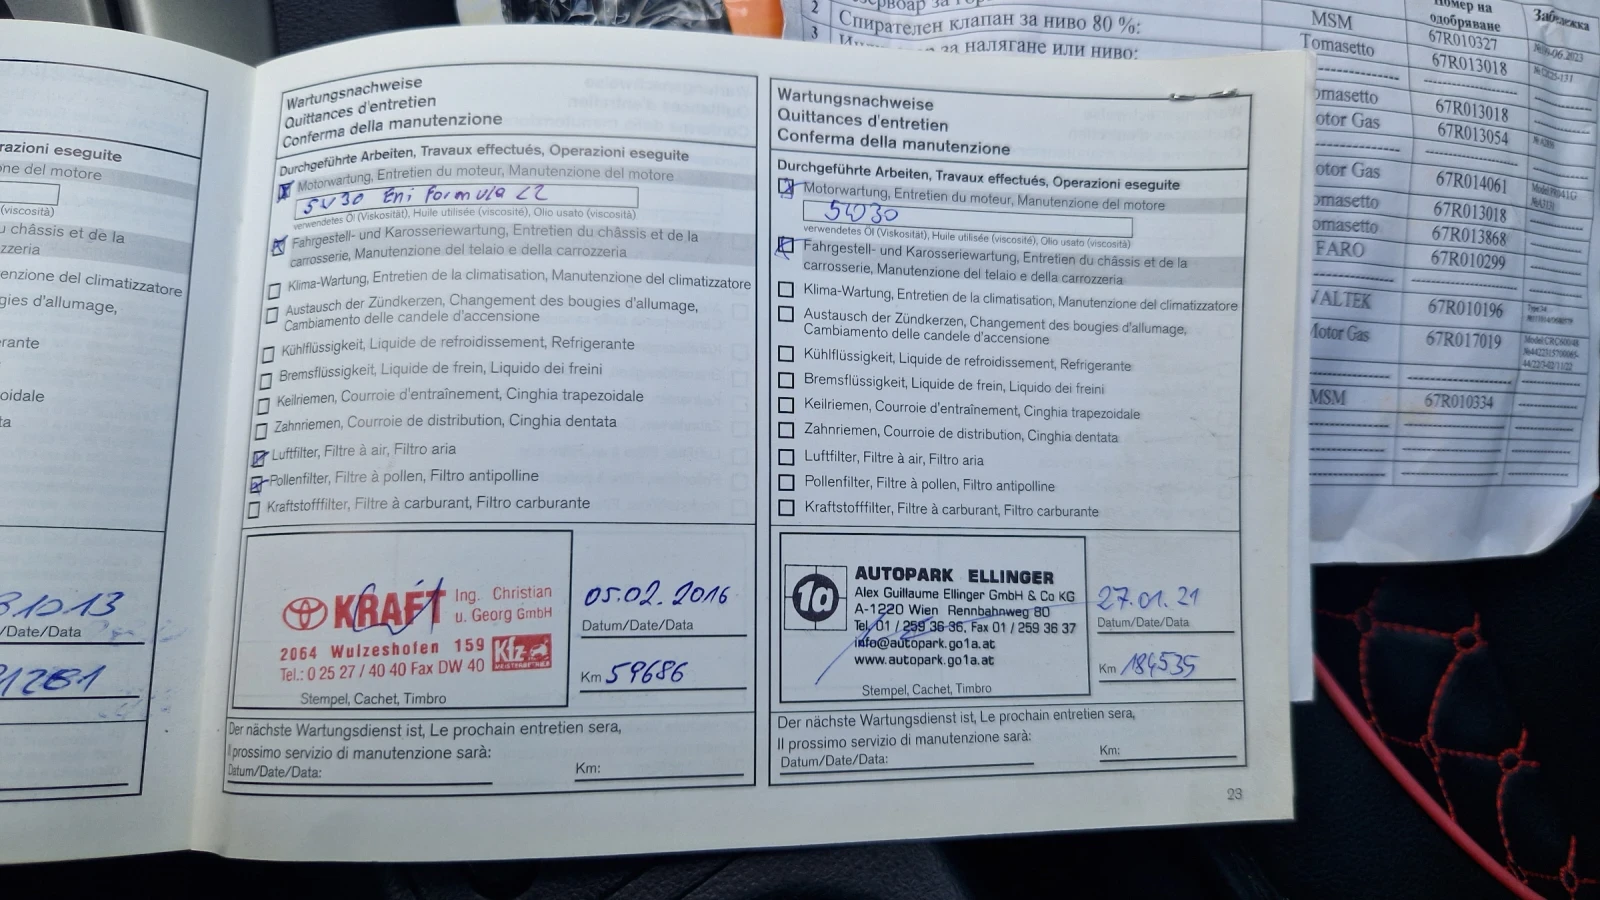 razioni eseguite
ne del motore
(viscosità)
u châssis et de la
zzeria
enzione del climatizzatore
gies d'allumage,
rante
oidale
ta
/Date/Data
Wartungsnachweise
Quittances d'entretien
Conferma della manutenzione
Durchgeführte Arbeiten, Travaux effectués, Operazioni eseguite
Motorwartung, Entretien du moteur, Manutenzione del motore
5W30 Eni Formula
verwendetes Öl (Viskosität), Huile utilisée (viscosité), Olio usato (viscosità)
Fahrgestell- und Karosseriewartung, Entretien du châssis et de la
carrosserie, Manutenzione del telaio e della carrozzeria
Klima-Wartung, Entretien de la climatisation, Manutenzione del climatizzatore
Austausch der Zündkerzen, Changement des bougies d'allumage,
Cambiamento delle candele d'accensione
Kühlflüssigkeit, Liquide de refroidissement, Refrigerante
Bremsflüssigkeit, Liquide de frein, Liquido dei freini
Keilriemen, Courroie d'entraînement, Cinghia trapezoidale
Zahnriemen, Courroie de distribution, Cinghia dentata
Luftfilter, Filtre à air, Filtro aria
Pollenfilter, Filtre à pollen, Filtro antipolline
Kraftstofffilter, Filtre à carburant, Filtro carburante
KRAFT Ing. Christian
u. Georg GmbH
2064 Wulzeshofen 159
Tel.: 0 25 27 / 40 40 Fax DW 40
Kfz
Stempel, Cachet, Timbro
05.02.2016
Datum/Date/Data
Km 59686
Der nächste Wartungsdienst ist, Le prochain entretien sera,
Il prossimo servizio di manutenzione sarà:
Datum/Date/Data:
Km:
Wartungsnachweise
Quittances d'entretien
Conferma della manutenzione
Durchgeführte Arbeiten, Travaux effectués, Operazioni eseguite
Motorwartung, Entretien du moteur, Manutenzione del motore
5W30
verwendetes Öl (Viskosität), Huile utilisée (viscosité), Olio usato (viscosità)
Fahrgestell- und Karosseriewartung, Entretien du châssis et de la
carrosserie, Manutenzione del telaio e della carrozzeria
Klima-Wartung, Entretien de la climatisation, Manutenzione del climatizzatore
Austausch der Zündkerzen, Changement des bougies d'allumage,
Cambiamento delle candele d'accensione
Kühlflüssigkeit, Liquide de refroidissement, Refrigerante
Bremsflüssigkeit, Liquide de frein, Liquido dei freini
Keilriemen, Courroie d'entraînement, Cinghia trapezoidale
Zahnriemen, Courroie de distribution, Cinghia dentata
Luftfilter, Filtre à air, Filtro aria
Pollenfilter, Filtre à pollen, Filtro antipolline
Kraftstofffilter, Filtre à carburant, Filtro carburante
1a
AUTOPARK ELLINGER
Alex Guillaume Ellinger GmbH & Co KG
A-1220 Wien Rennbahnweg 80
Tel. 01 / 259 36 36, Fax 01 / 259 36 37
info@autopark.go1a.at
www.autopark.go1a.at
Stempel, Cachet, Timbro
27.01.21
Datum/Date/Data
Km 184535
Der nächste Wartungsdienst ist, Le prochain entretien sera,
Il prossimo servizio di manutenzione sarà:
Datum/Date/Data:
Km:
23
одобряване
Забележка
2 Спирателен клапан за ниво 80 %: MSM 67R010327
3 за налягане или ниво: Tomasetto 67R013018
omasetto 67R013018
otor Gas 67R013054
otor Gas 67R014061
omasetto 67R013018
omasetto 67R013868
FARO 67R010299
VALTEK 67R010196
Motor Gas 67R017019
MSM 67R010334